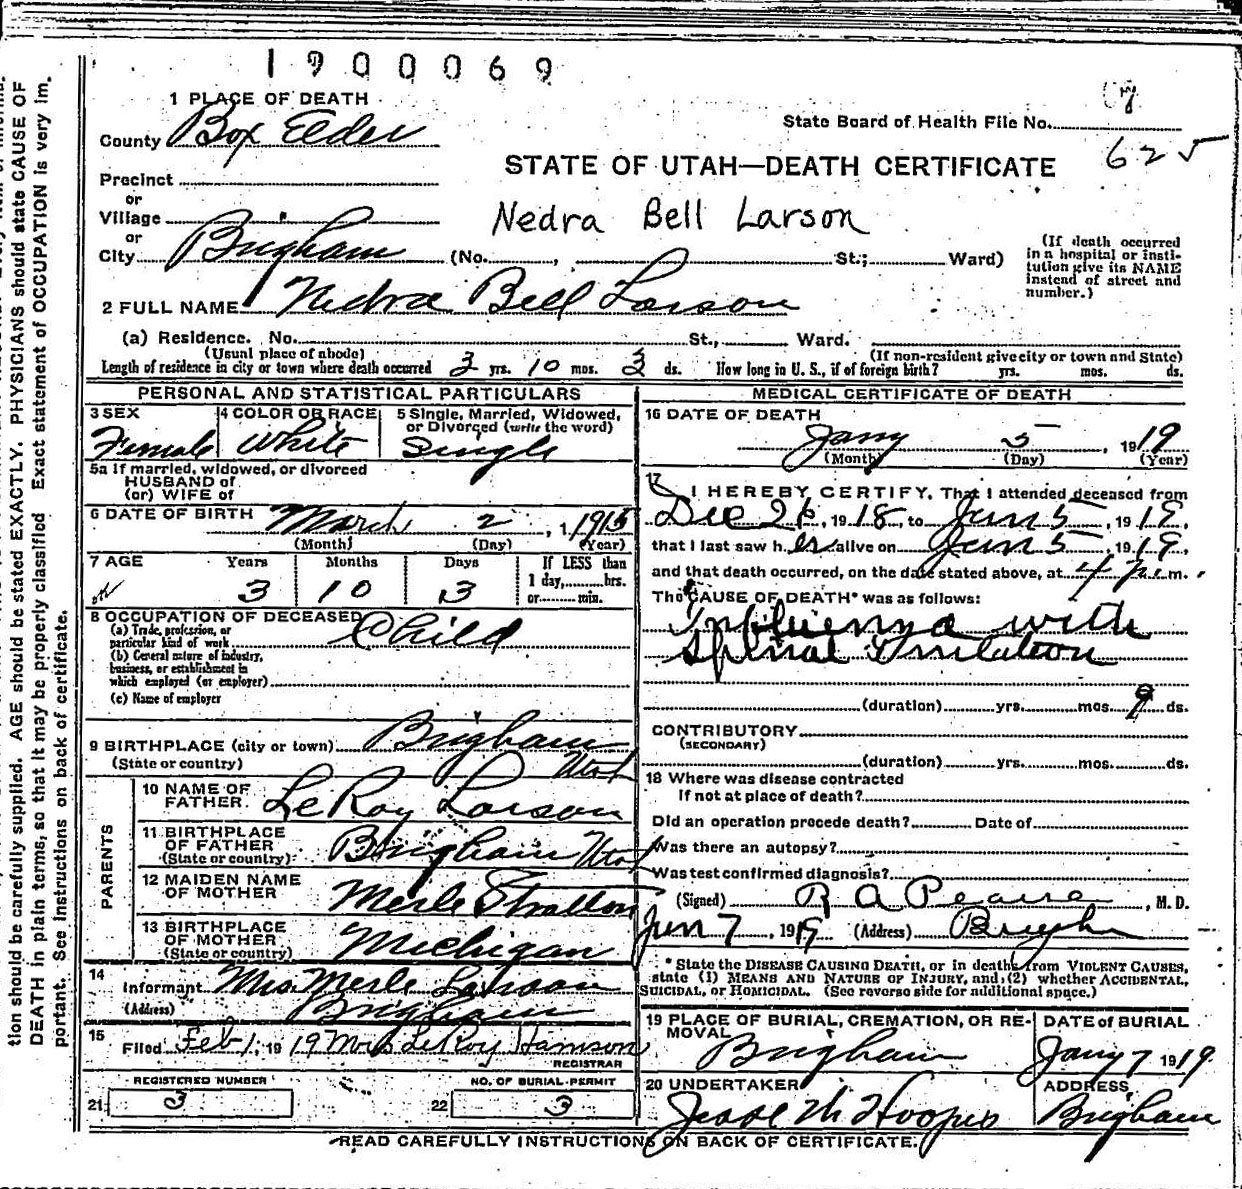 1900069
1 PLACE OF DEATH
County Box Elder
State Board of Health File No.
625
STATE OF UTAH—DEATH CERTIFICATE
Precinct
or
Village
Nedra Bell Larson
or
City Brigham (No. , St.; Ward)
(If death occurred
in a hospital or insti-
tution give its NAME
instead of street and
number.)
2 FULL NAME Nedra Bell Larson
(a) Residence. No. St., Ward.
(Usual place of abode) (If non-resident give city or town and State)
Length of residence in city or town where death occurred 3 yrs. 10 mos. 3 ds. How long in U. S., if of foreign birth? yrs. mos. ds.
PERSONAL AND STATISTICAL PARTICULARS
3 SEX 4 COLOR OR RACE 5 Single, Married, Widowed,
or Divorced (write the word)
Female White Single
5a If married, widowed, or divorced
HUSBAND of
(or) WIFE of
6 DATE OF BIRTH March 2, 1915
(Month) (Day) (Year)
7 AGE Years Months Days If LESS than
1 day, hrs.
3 10 3 or min.
8 OCCUPATION OF DECEASED Child
(a) Trade, profession, or
particular kind of work
(b) General nature of industry,
business, or establishment in
which employed (or employer)
(c) Name of employer
9 BIRTHPLACE (city or town) Brigham
(State or country) Utah
PARENTS
10 NAME OF
FATHER. LeRoy Larson
11 BIRTHPLACE
OF FATHER Brigham Utah
(State or country)
12 MAIDEN NAME
OF MOTHER Merle Stratton
13 BIRTHPLACE
OF MOTHER Michigan
(State or country)
14
Informant Mrs Merle Larson
(Address) Brigham
15
Filed Feb 1, 1919 Mrs LeRoy Hamson
REGISTRAR
REGISTERED NUMBER NO. OF BURIAL PERMIT
21 3 22 3
MEDICAL CERTIFICATE OF DEATH
16 DATE OF DEATH
Jany 5 1919
(Month) (Day) (Year)
17 I HEREBY CERTIFY, That I attended deceased from
Dec 26, 1918, to Jan 5, 1919,
that I last saw her alive on Jan 5, 1919,
and that death occurred, on the date stated above, at 4 p.m.
The CAUSE OF DEATH* was as follows:
Influenza with
Spinal Irritation
(duration) yrs. mos. 9 ds.
CONTRIBUTORY
(SECONDARY)
(duration) yrs. mos. ds.
18 Where was disease contracted
If not at place of death?
Did an operation precede death? Date of
Was there an autopsy?
Was test confirmed diagnosis?
(Signed) R A Pearse, M. D.
Jan 7, 1919 (Address) Brigham
* State the DISEASE CAUSING DEATH, or in deaths from VIOLENT CAUSES,
state (1) MEANS AND NATURE OF INJURY, and (2) whether ACCIDENTAL,
SUICIDAL, or HOMICIDAL. (See reverse side for additional space.)
19 PLACE OF BURIAL, CREMATION, OR RE-
MOVAL
DATE of BURIAL
Brigham Jany 7 1919
20 UNDERTAKER ADDRESS
Jesse M Hooper Brigham
READ CAREFULLY INSTRUCTIONS ON BACK OF CERTIFICATE.
tion should be carefully supplied. AGE should be stated EXACTLY. PHYSICIANS should state CAUSE OF
DEATH in plain terms, so that it may be properly classified Exact statement of OCCUPATION is very im-
portant. See instructions on back of certificate.